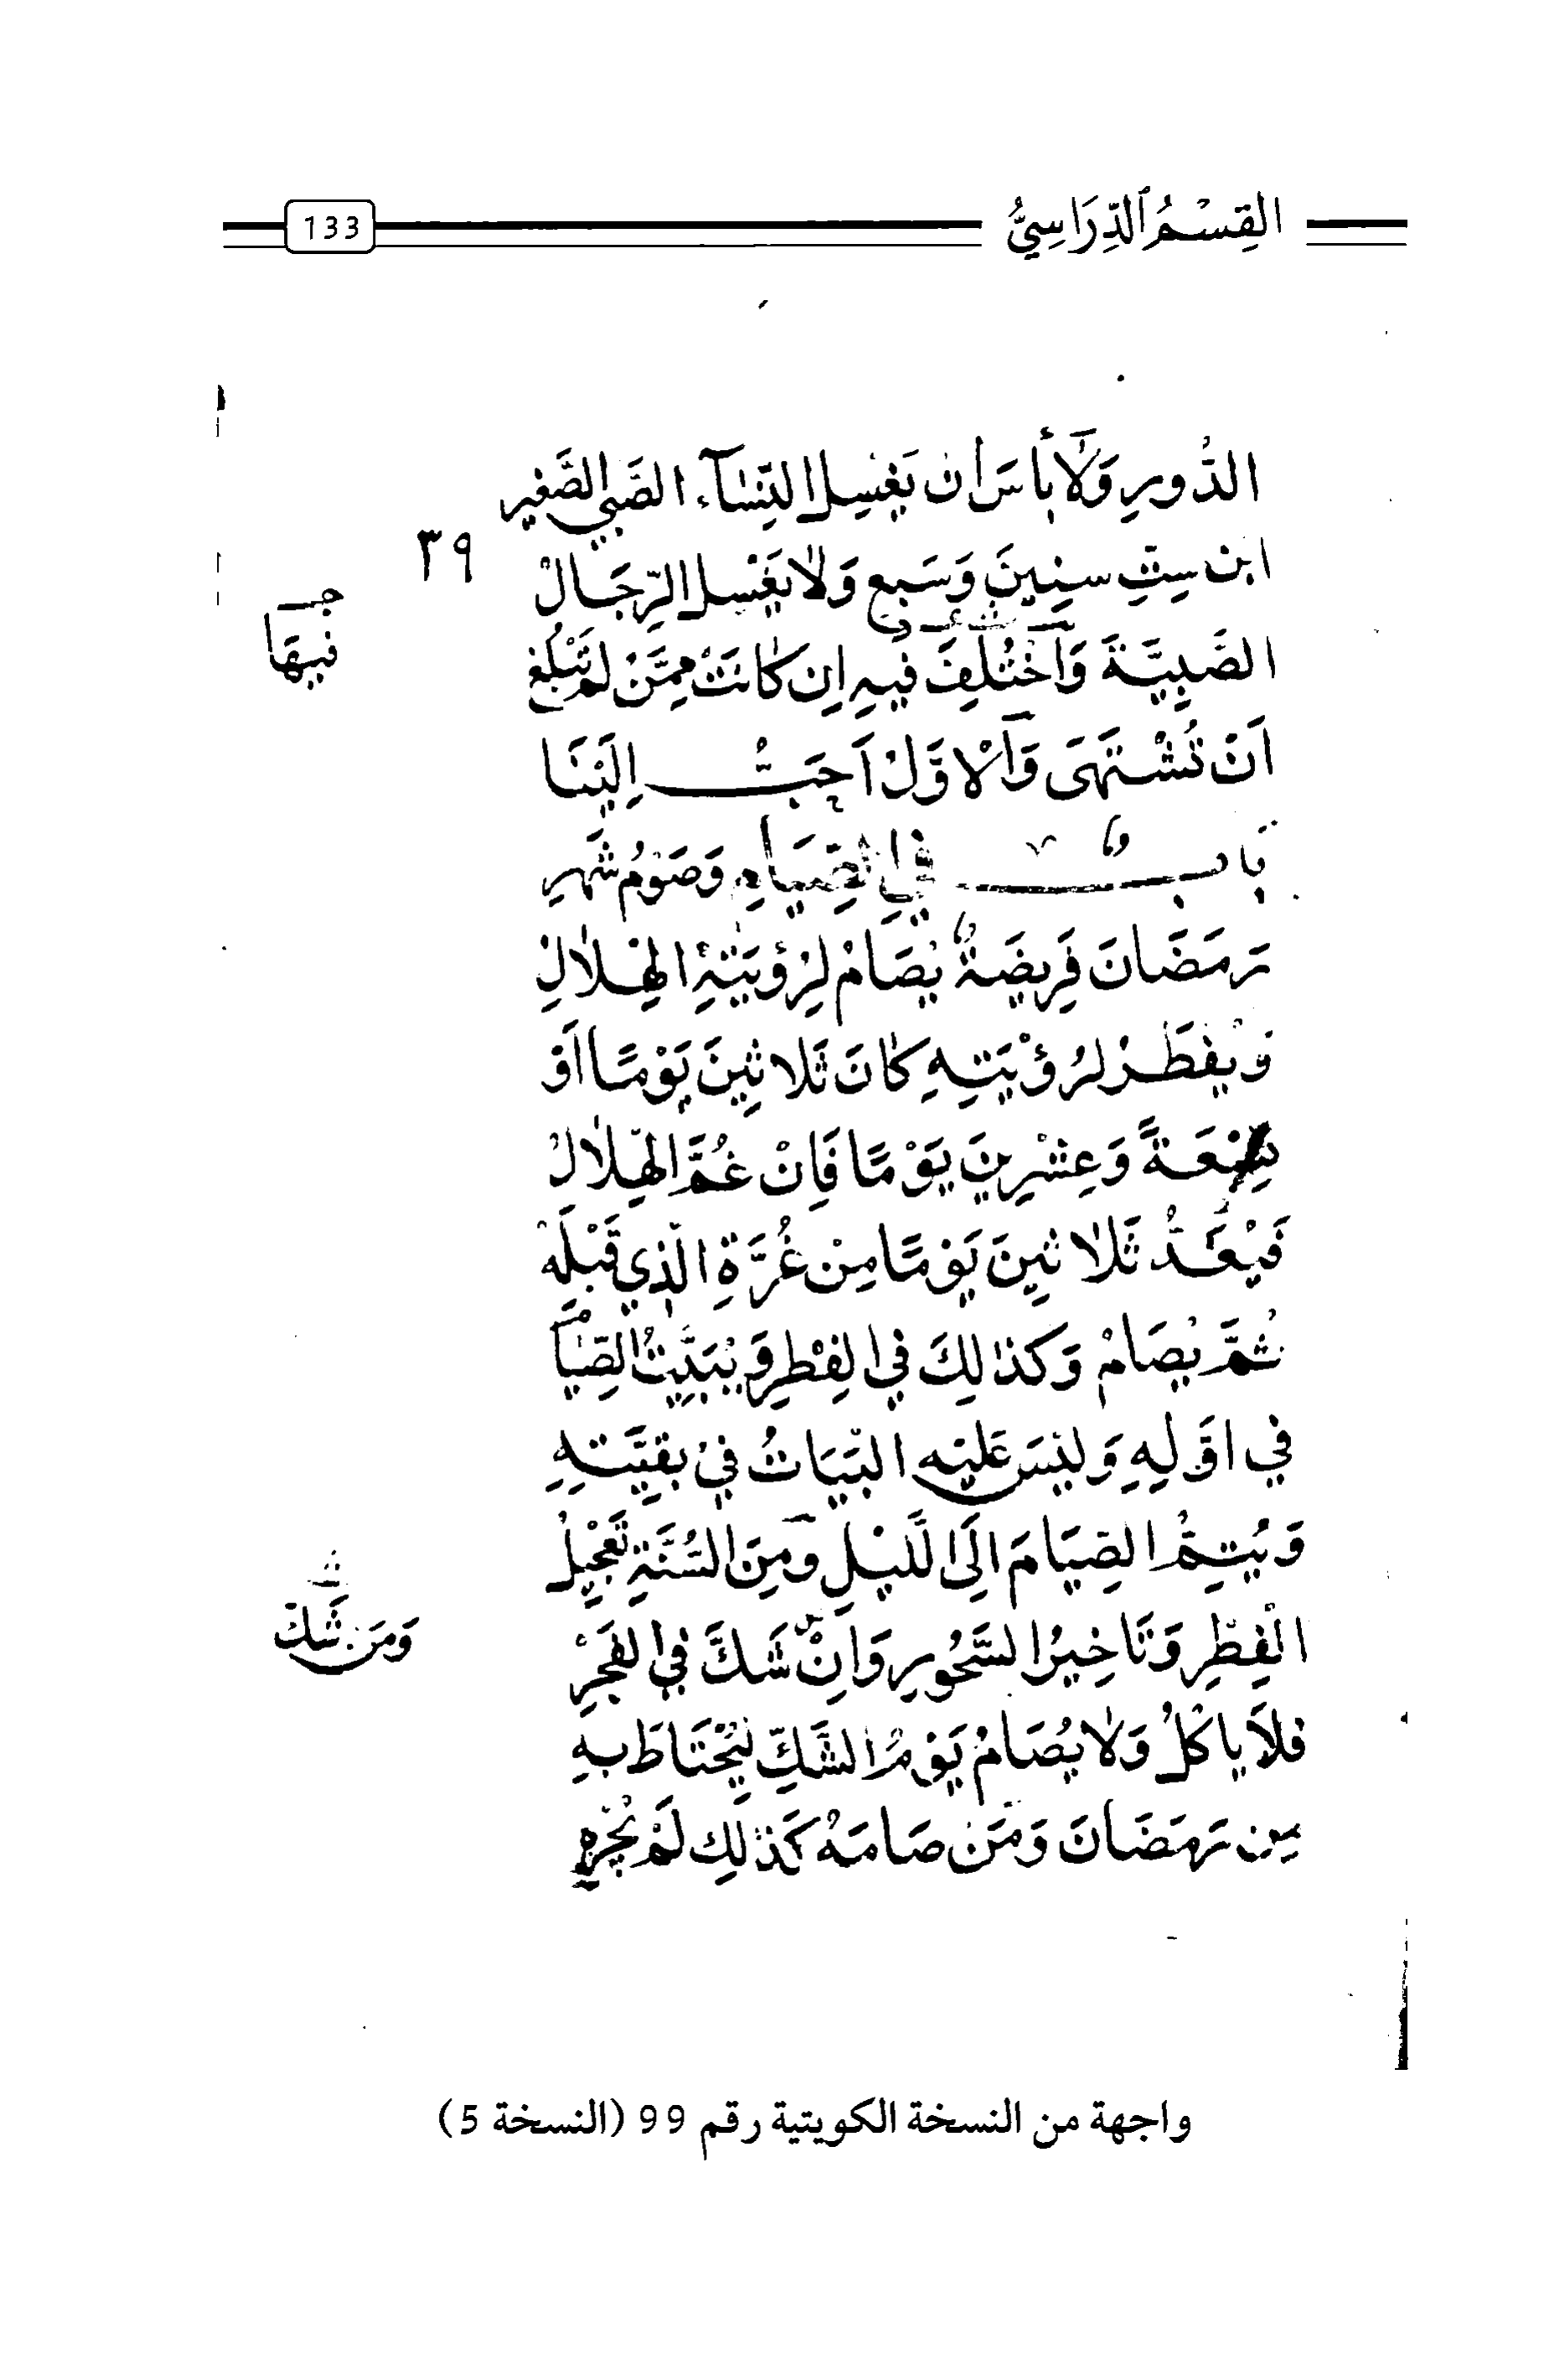 القِسْمُ ٱلدِّرَاسِيُّ
133
الدُّورِ وَلَا بأسَ أن يَغْسِلَ النِّسَآء الصَّبِي الصَّغِير
٣٩
ابن سِتِّ سِنِينَ وَسَبعٍ وَلَا يَغْسِل الرِّجَالُ
الصَّبِيَّةَ وَاخْتُلِفَ فيهِ اِن كَانَتْ مِمَّنْ لَمْ تَبْلُغ
فيهَا
اَنْ تُشْتَهَى وَالْاوَّلُ اَحَبُّ اِلَيْنَا
بَابٌ في الصِّيَامِ وَصَوْمُ شَهْرِ
رَمَضَانَ فَرِيضَةٌ يُصَامُ لِرُؤيَتِهِ الهِلَالِ
وَيُفْطَرُ لرُؤْيَتِهِ كَانَ ثَلاثِينَ يَوْمًا اَوْ
تِسْعَةً وَعِشْرِينَ يَوْمًا فَاِنْ غُمَّ الهِلَالُ
فَيُعَدُّ ثَلَاثِينَ يَوْمًا مِنْ غُرَّةِ الّذِي قَبْلَهُ
ثُمَّ يُصَامُ وَكَذَالِكَ في الفِطْرِ وَيُبَيَّتُ الصِّيَامُ
في اوَّلِهِ وَلَيْسَ عَلَيْهِ البَيَاتُ فيْ بَقِيَّتِهِ
وَيُتِمُّ الصِّيَامَ اِلَى اللَّيْلِ وَمِنَ السُّنَّةِ تَعْجِيلُ
الْفِطْرِ وَتَاخِيرُ السَّحُورِ وَاِنْ شَكَّ في الفَجْرِ
وَمَن شَكَّ
فلاَ ياكُلُ وَلَا يُصَامُ يَوْمُ الشَّكِّ لِيُحْتَاطَ بِهِ
مِن رَمَضَانَ وَمَن صَامَهُ كَذَلِكَ لَمْ يُجْزِهِ
واجهة من النسخة الكويتية رقم 99 (النسخة 5)